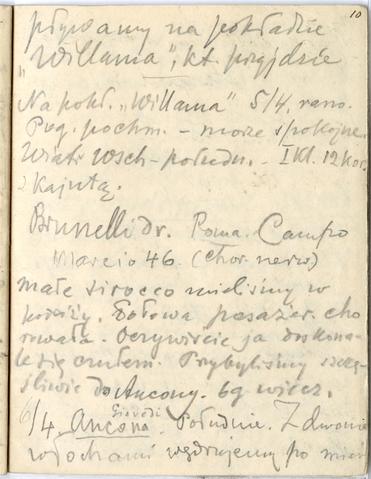 10
pływamy na pokładzie
"Willama", kt. przyjdzie
Na pokł. "Willama" 5/4. rano.
Pog. pochm. – morze spokojne.
Wiatr wsch-połudn. – I kl. 12 kor.
z kajutą.
Brunelli dr. Roma. Campo
Marcio 46. (chor. nerw)
małe sirocco mieliśmy w
podróży. Połowa pasażer. cho
rowała. Oczywiście ja doskona-
le się czułem. Przybyliśmy szczę-
śliwie do Ancony. 6g wiecz.
6/4. Ancona. Południe. Z dwoma
włochami wędrujemy po mieś